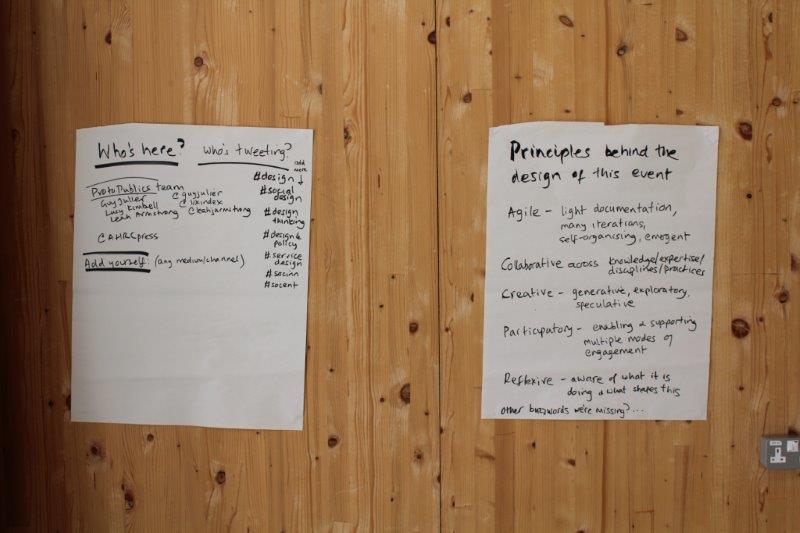 Who's here? Who's tweeting?
add more
#design ↓
#social design
#design thinking
#design & policy
#service design
#socinn
#socent
ProtoPublics team
Guy Julier @guyjulier
Lucy Kimbell @lixindex
Leah Armstrong @leahjarmstrong
@AHRCpress
Add yourself: (any medium/channel)
Principles behind the
design of this event
Agile - light documentation,
many iterations,
self-organising, emergent
Collaborative across knowledge/expertise/
disciplines/practices
Creative - generative, exploratory,
speculative
Participatory - enabling & supporting
multiple modes of
engagement
Reflexive - aware of what it is
doing & what shapes this
other buzzwords we're missing?...